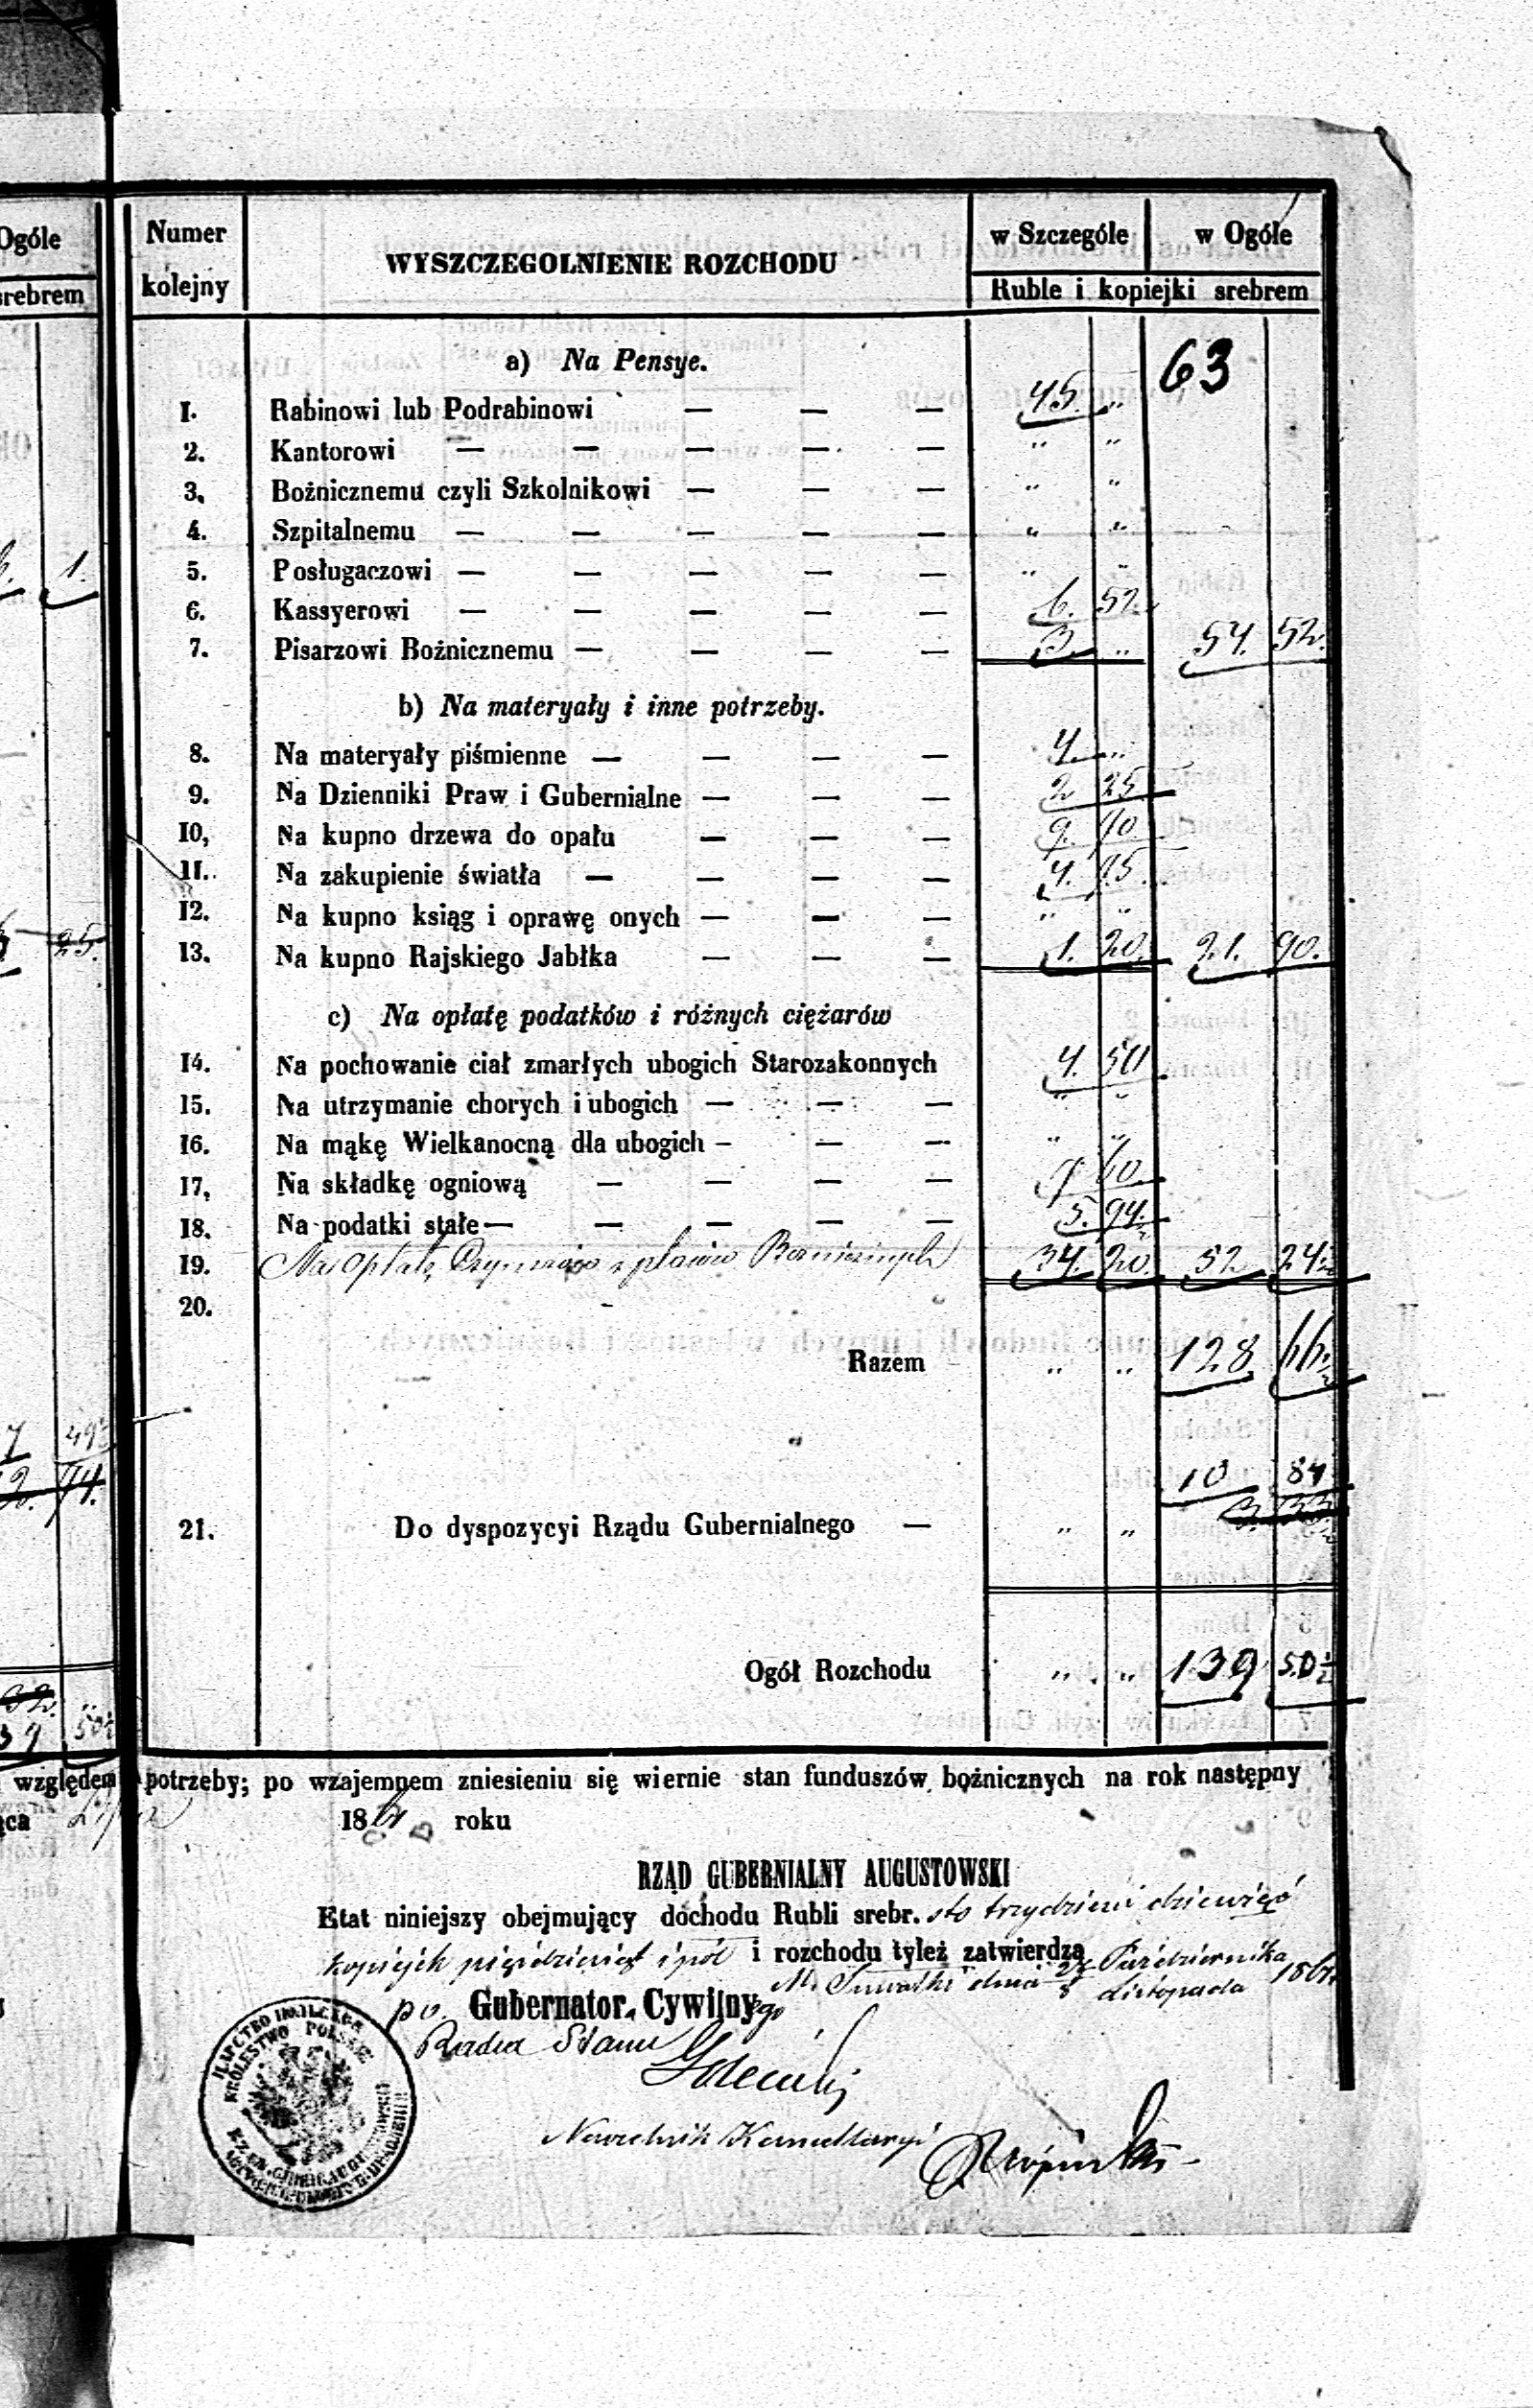 Ogóle
srebrem
Numer kolejny WYSZCZEGOLNIENIE ROZCHODU w Szczególe w Ogóle
Ruble i kopiejki srebrem
63
a) Na Pensye.
1. Rabinowi lub Podrabinowi — — — 45. „
2. Kantorowi — — — — — „ „
3. Bożnicznemu czyli Szkolnikowi — — — „ „
4. Szpitalnemu — — — — — „ „
5. Posługaczowi — — — — — „ „
6. Kassyerowi — — — — — 6. 52.
7. Pisarzowi Bożnicznemu — — — — 3. „ 54. 52.
b) Na materyały i inne potrzeby.
8. Na materyały piśmienne — — — — 4. „
9. Na Dzienniki Praw i Gubernialne — — — 2 25.
10, Na kupno drzewa do opału — — — 9. 10
11. Na zakupienie światła — — — —
12. Na kupno ksiąg i oprawę onych — — — „ „
13. Na kupno Rajskiego Jabłka — — — 1. 20. 21. 90.
c) Na opłatę podatków i różnych ciężarów
14. Na pochowanie ciał zmarłych ubogich Starozakonnych 4. 50
15. Na utrzymanie chorych i ubogich — — — „ „
16. Na mąkę Wielkanocną dla ubogich — — — „ „
17, Na składkę ogniową — — — — 60.
18. Na podatki stałe — — — — 5. 94.½
19. Na opłatę Czynszu z placów Bożnicznych 34. 20. 52 24½
20.
Razem „ „ 128 66.½
10 84
21. Do dyspozycyi Rządu Gubernialnego — „ „
Ogół Rozchodu „ „ 139 50½
względem potrzeby; po wzajemnem zniesieniu się wiernie stan funduszów bożnicznych na rok następny
Lipca 18 roku
RZĄD GUBERNIALNY AUGUSTOWSKI
Etat niniejszy obejmujący dochodu Rubli srebr. sto trzydzieści dziewięć
kopiejek pięćdziesiąt i pół i rozchodu tyleż zatwierdza
M. Suwałki dnia Października Listopada 1861.
po. Gubernator. Cywilny
Radca Stanu
Naczelnik Kancellaryi
KRÓLESTWO POLSKIE